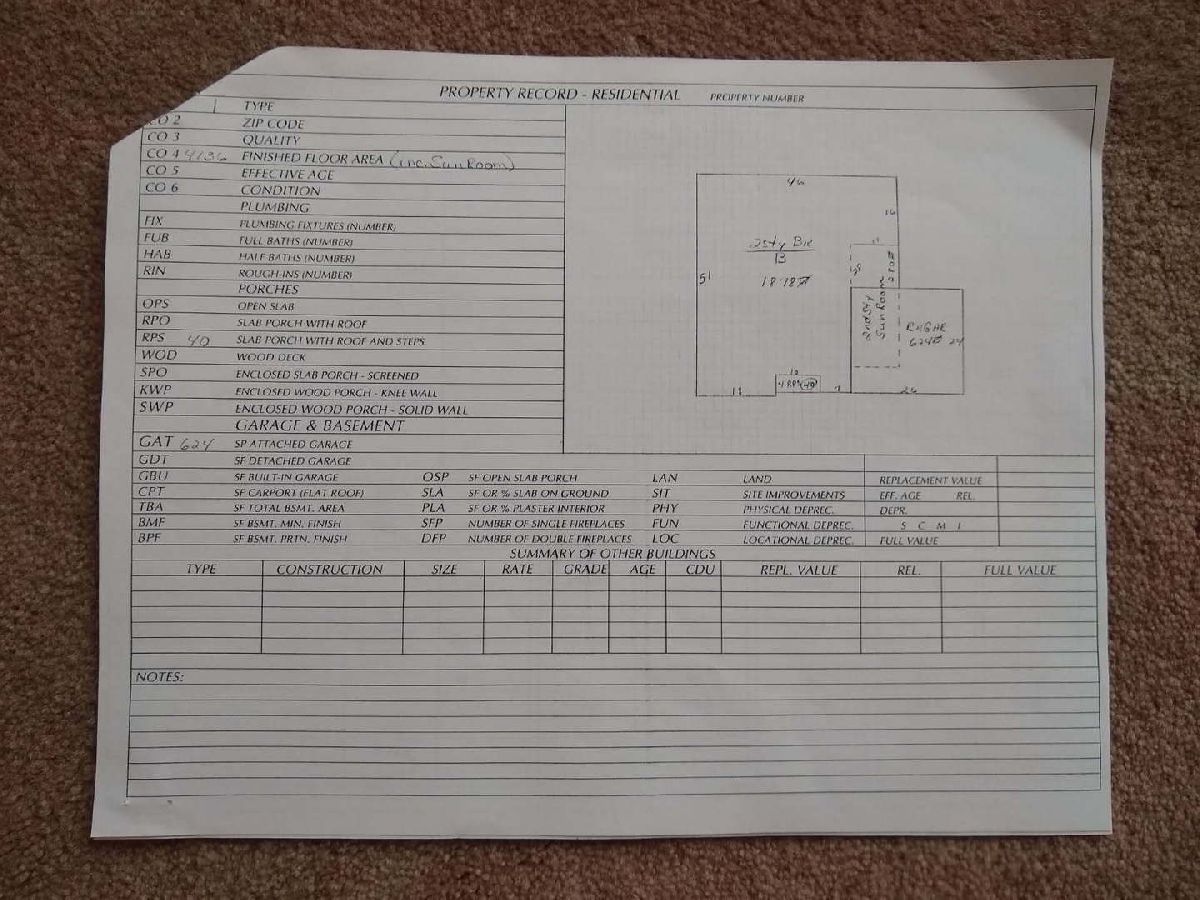 PROPERTY RECORD - RESIDENTIAL PROPERTY NUMBER
TYPE
CO 2 ZIP CODE
CO 3 QUALITY
CO 4 4136 FINISHED FLOOR AREA (inc. SunRoom)
CO 5 EFFECTIVE AGE
CO 6 CONDITION
PLUMBING
FIX PLUMBING FIXTURES (NUMBER)
FUB FULL BATHS (NUMBER)
HAB HALF BATHS (NUMBER)
RIN ROUGH-INS (NUMBER)
PORCHES
OPS OPEN SLAB
RPO SLAB PORCH WITH ROOF
RPS 40 SLAB PORCH WITH ROOF AND STEPS
WOD WOOD DECK
SPO ENCLOSED SLAB PORCH - SCREENED
KWP ENCLOSED WOOD PORCH - KNEE WALL
SWP ENCLOSED WOOD PORCH - SOLID WALL
GARAGE & BASEMENT
GAT 624 SF ATTACHED GARAGE
GDT SF DETACHED GARAGE
46
16
2 Sty
B
51
2nd Sty
SunRoom
624 24
10
11
7
26
GBU SF BUILT-IN GARAGE OSP SF OPEN SLAB PORCH LAN LAND REPLACEMENT VALUE
CPT SF CARPORT (FLAT ROOF) SLA SF OR % SLAB ON GROUND SIT SITE IMPROVEMENTS EFF. AGE REL.
TBA SF TOTAL BSMT. AREA PLA SF OR % PLASTER INTERIOR PHY PHYSICAL DEPREC. DEPR.
BMF SF BSMT. MIN. FINISH SFP NUMBER OF SINGLE FIREPLACES FUN FUNCTIONAL DEPREC. S C M I
BPF SF BSMT. PRTN. FINISH DFP NUMBER OF DOUBLE FIREPLACES LOC LOCATIONAL DEPREC. FULL VALUE
SUMMARY OF OTHER BUILDINGS
TYPE CONSTRUCTION SIZE RATE GRADE AGE CDU REPL. VALUE REL. FULL VALUE
NOTES: